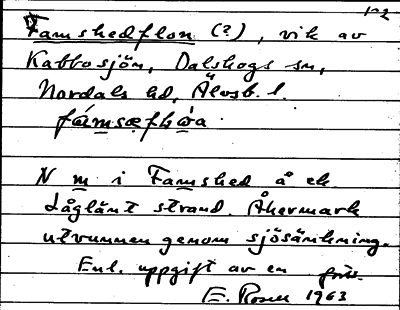 1-2
Famshedflon (?), vik av
Kabbosjön, Dalskogs sn,
Nordals hd, Älvsb. l.
N m i Famshed å ek.
Låglänt strand. Åkermark
utvunnen genom sjösänkning.
Enl. uppgift av en
E. Rosell 1963